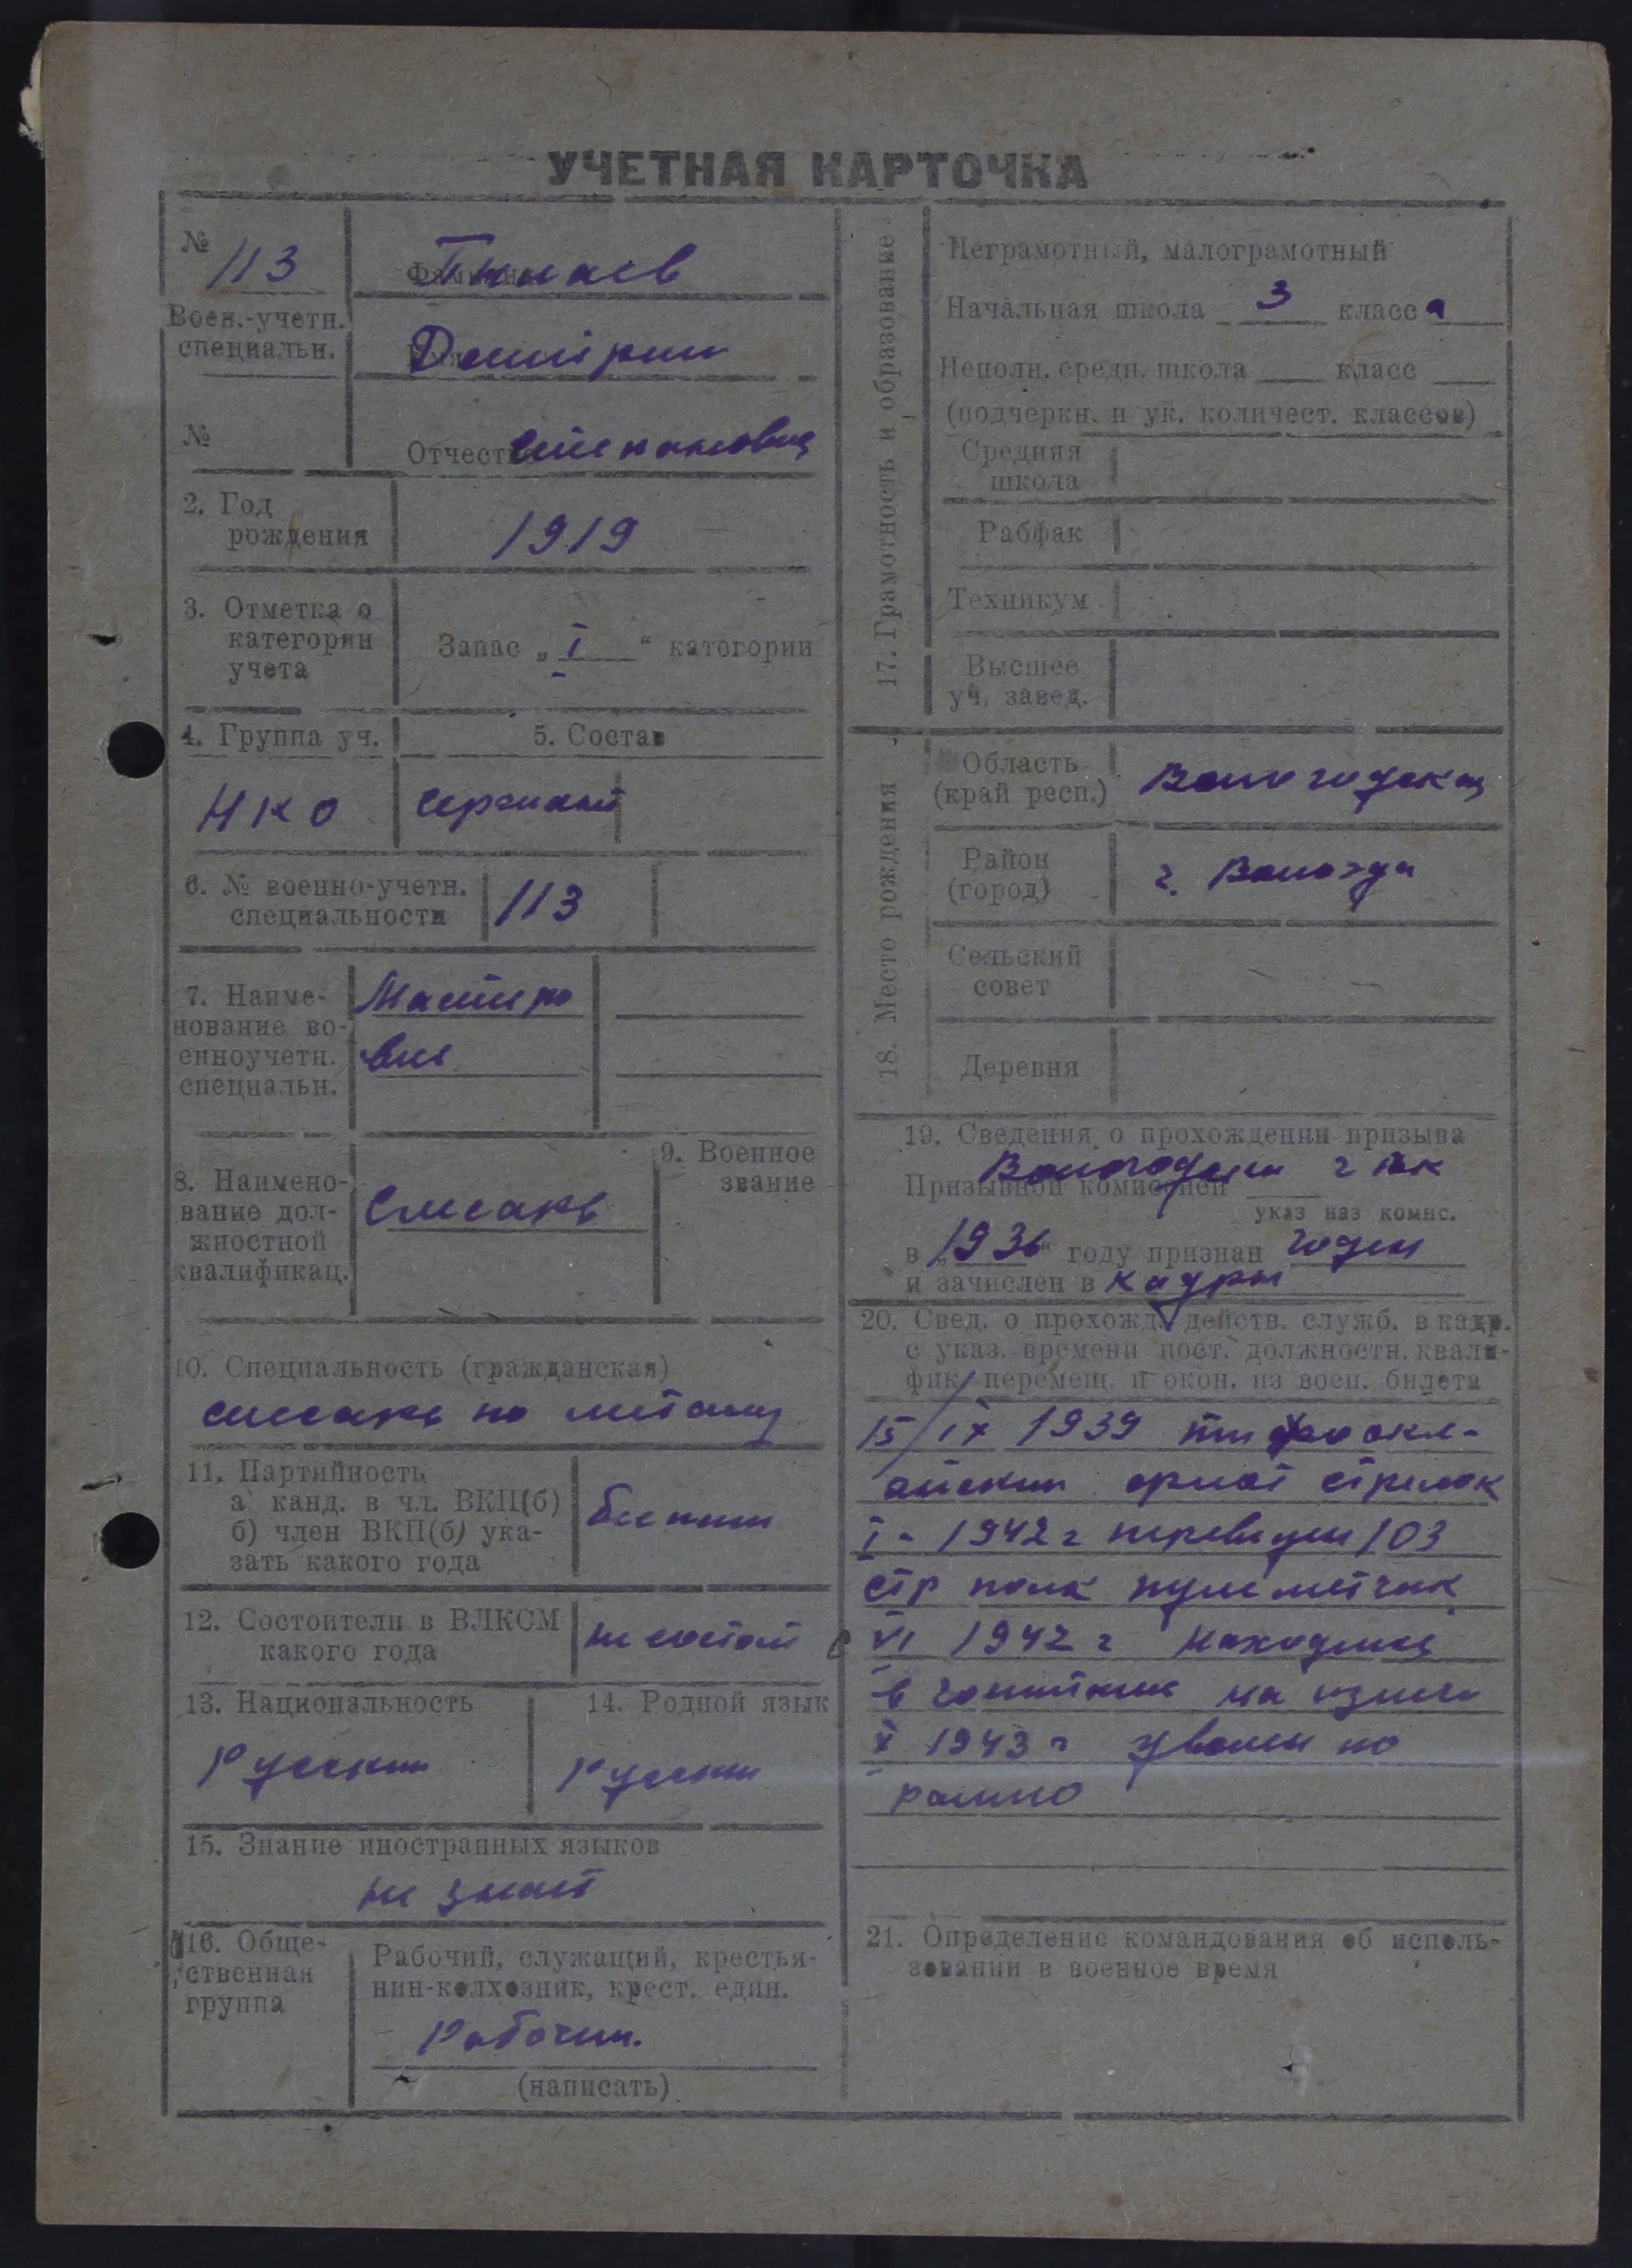 УЧЕТНАЯ КАРТОЧКА
№
113
Воен.-учетн.
специальн.
№
Фамилия
Имя Дмитрии
Отчество Степанович
2. Год
рождения
1919
3. Отметка о
категории
учета
Запас „ I “ категории
4. Группа уч.
5. Состав
НКО
Сержант
6. № военно-учетн.
специальности
113
7. Наиме-
нование во-
енноучетн.
специальн.
Мастеро
вые
8. Наимено-
вание дол-
жностной
квалификац.
Слесарь
9. Военное
звание
10. Специальность (гражданская)
слесарь по металу
11. Партийность
а) канд. в чл. ВКП(б)
б) член ВКП(б) ука-
зать какого года
12. Состоители в ВЛКСМ
какого года
не состоит
13. Национальность
Русскии
14. Родной язык
Русскии
15. Знание иностранных языков
не знает
16. Обще-
ственная
группа
Рабочий, служащий, крестья-
нин-колхозник, крест. един.
Рабочии.
(написать)
17. Грамотность и образование
Неграмотный, малограмотный
Начальная школа 3 класс а
Неполн. средн. школа класс
(подчеркн. и ук. количест. классов)
Средняя
школа
Рабфак
Техникум
Высшее
уч. завед.
18. Место рождения
Область
(край респ.)
Вологодская
Район
(город)
г. Вологда
Сельский
совет
Деревня
19. Сведения о прохождении призыва
Призывной комиссией Вологодскии
указ наз комис.
в „1936“ году признан годен
и зачислен в кадры
20. Свед. о прохожд. действ. служб. в кадр.
с указ. времени пост. должностн. квали-
фик. перемещ. и окон. из воен. билета
15/IX 1939
стрелок
I - 1942 г переведен 103
стр полк пулеметчик
с VI 1942 г находился
в госпитале на излеч
X 1943 г уволен по
ранию
21. Определение командования об исполь-
зовании в военное время